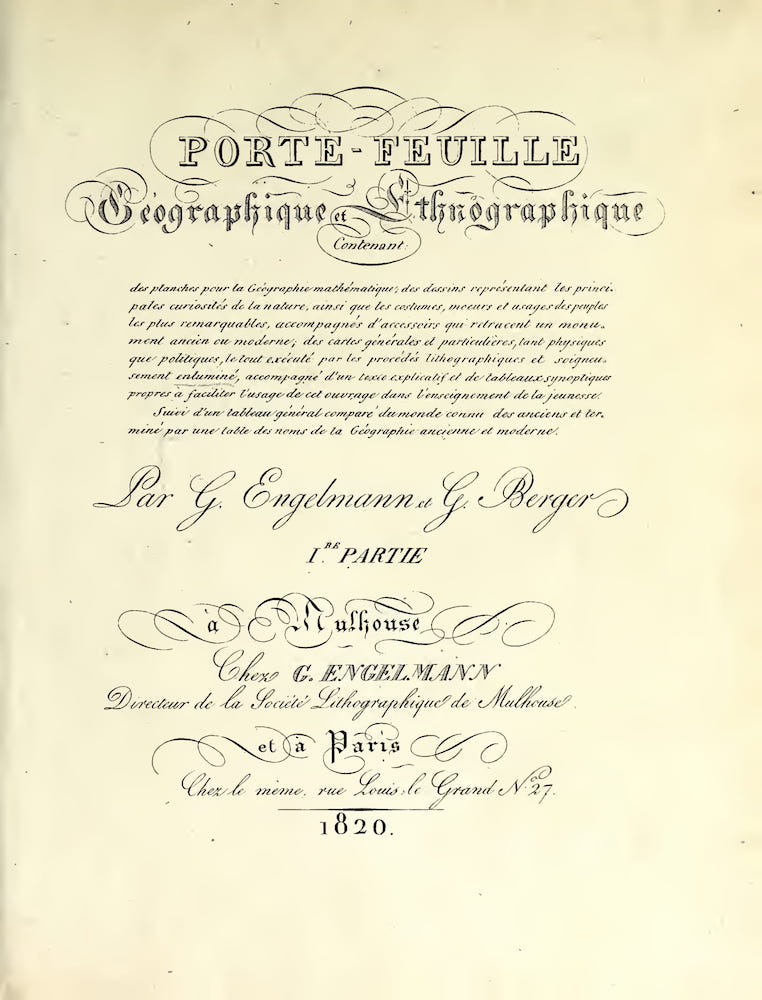 PORTE-FEUILLE
Géographique et Ethnographique
Contenant:
des planches pour la Géographie mathématique; des dessins représentant les princi-
pales curiosités de la nature, ainsi que les costumes, moeurs et usages des peuples
les plus remarquables, accompagnés d'accessoirs qui retracent un monu-
ment ancien ou moderne; des cartes générales et particulières, tant physiques
que politiques, le tout exécuté par les procédés lithographiques et soigneu-
sement enluminé, accompagné d'un texte explicatif et de tableaux synoptiques
propres à faciliter l'usage de cet ouvrage dans l'enseignement de la jeunesse.
Suivi d'un tableau général comparé du monde connu des anciens et ter-
miné par une table des noms de la Géographie ancienne et moderne.
Par G. Engelmann et G. Berger
I.RE PARTIE
à Mulhouse
Chez G. ENGELMANN
Directeur de la Société Lithographique de Mulhouse.
et à Paris
Chez le même. rue Louis-le Grand N.o 27.
1820.